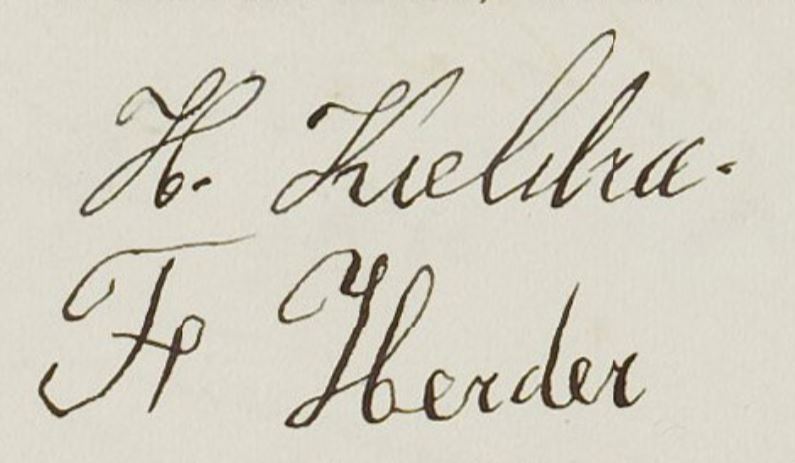 H. Kieldra.
Fr Herder